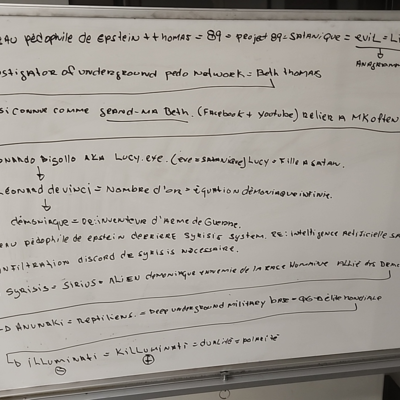 EAU pédophile de Epstein ++ thomas = 89 = projet 89 = satanique = evil = Li
ANAGRAMM
estigator of underground pedo network = Beth thomas
si connue comme grand-ma Beth. (Facebook + Youtube) relier a MK often
onardo Bigollo AKA Lucy.exe. (exe = satanique) Lucy = fille a satan.
Léonard de vinci = Nombre d'or = équation démoniaque infinie.
démoniaque = re: inventeur d'arme de Guerre.
eau pédophile de epstein derriere syrisis system. re: intelligence artificielle sa
nfiltration discord de syrisis necessaire.
syrisis = sirius = Alien demoniaque ennemie de la race humaine allié des Dem
-D Anunaki = Reptiliens = Deep underground military base = QG élite mondiale
illuminati = killuminati = dualité = polarité
- +